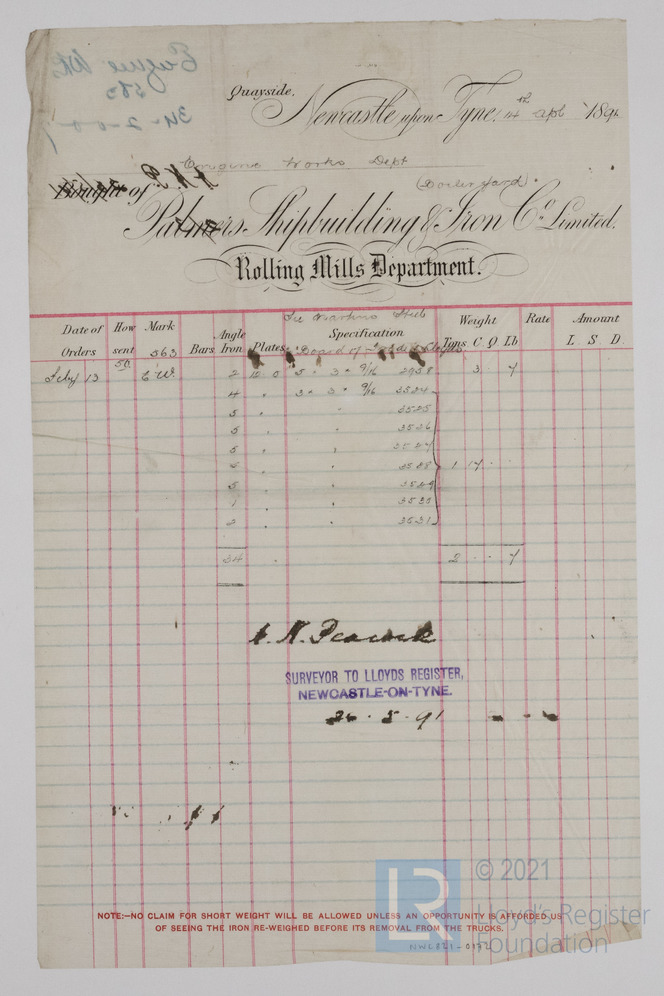 Engine Wks
563
34-2-0-0-7
Quayside.
Newcastle upon Tyne, 14th Apl 1891
Engine Works Dept
Bought of
(Boiler yard).
Palmers Shipbuilding & Iron Co. Limited.
Rolling Mills Department.
Date of Orders How sent Mark Bars Angle Iron Plates Specification Weight Tons C Q Lb Rate Amount L S D.
563 Board of
50
July 13 E W. 2 5 3 9/16 2958 3 7
4 3 3 9/16 3524
5 " " 3525
5 " " 3526
5 " " 3527
5 " " 3528 1 17
5 " " 3529
1 " " 3530
2 " " 3531
34 2 " " 7
N. Peacock
SURVEYOR TO LLOYDS REGISTER,
NEWCASTLE-ON-TYNE.
26.5.91
NOTE:—NO CLAIM FOR SHORT WEIGHT WILL BE ALLOWED UNLESS AN OPPORTUNITY IS AFFORDED US
OF SEEING THE IRON RE-WEIGHED BEFORE ITS REMOVAL FROM THE TRUCKS.
LR
© 2021
Lloyd's Register
Foundation